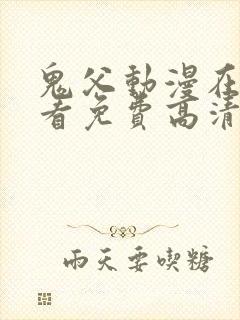 鬼父動漫在
看免費高清
雨天要喫糖